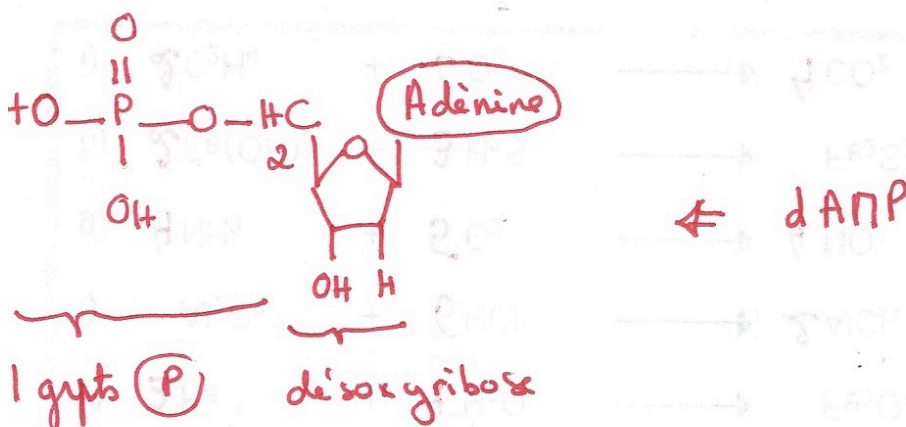 O
||
HO — P — O — HC Adènine
| 2 O
OH
OH H
← dAMP
1 gypts P désoxyribose